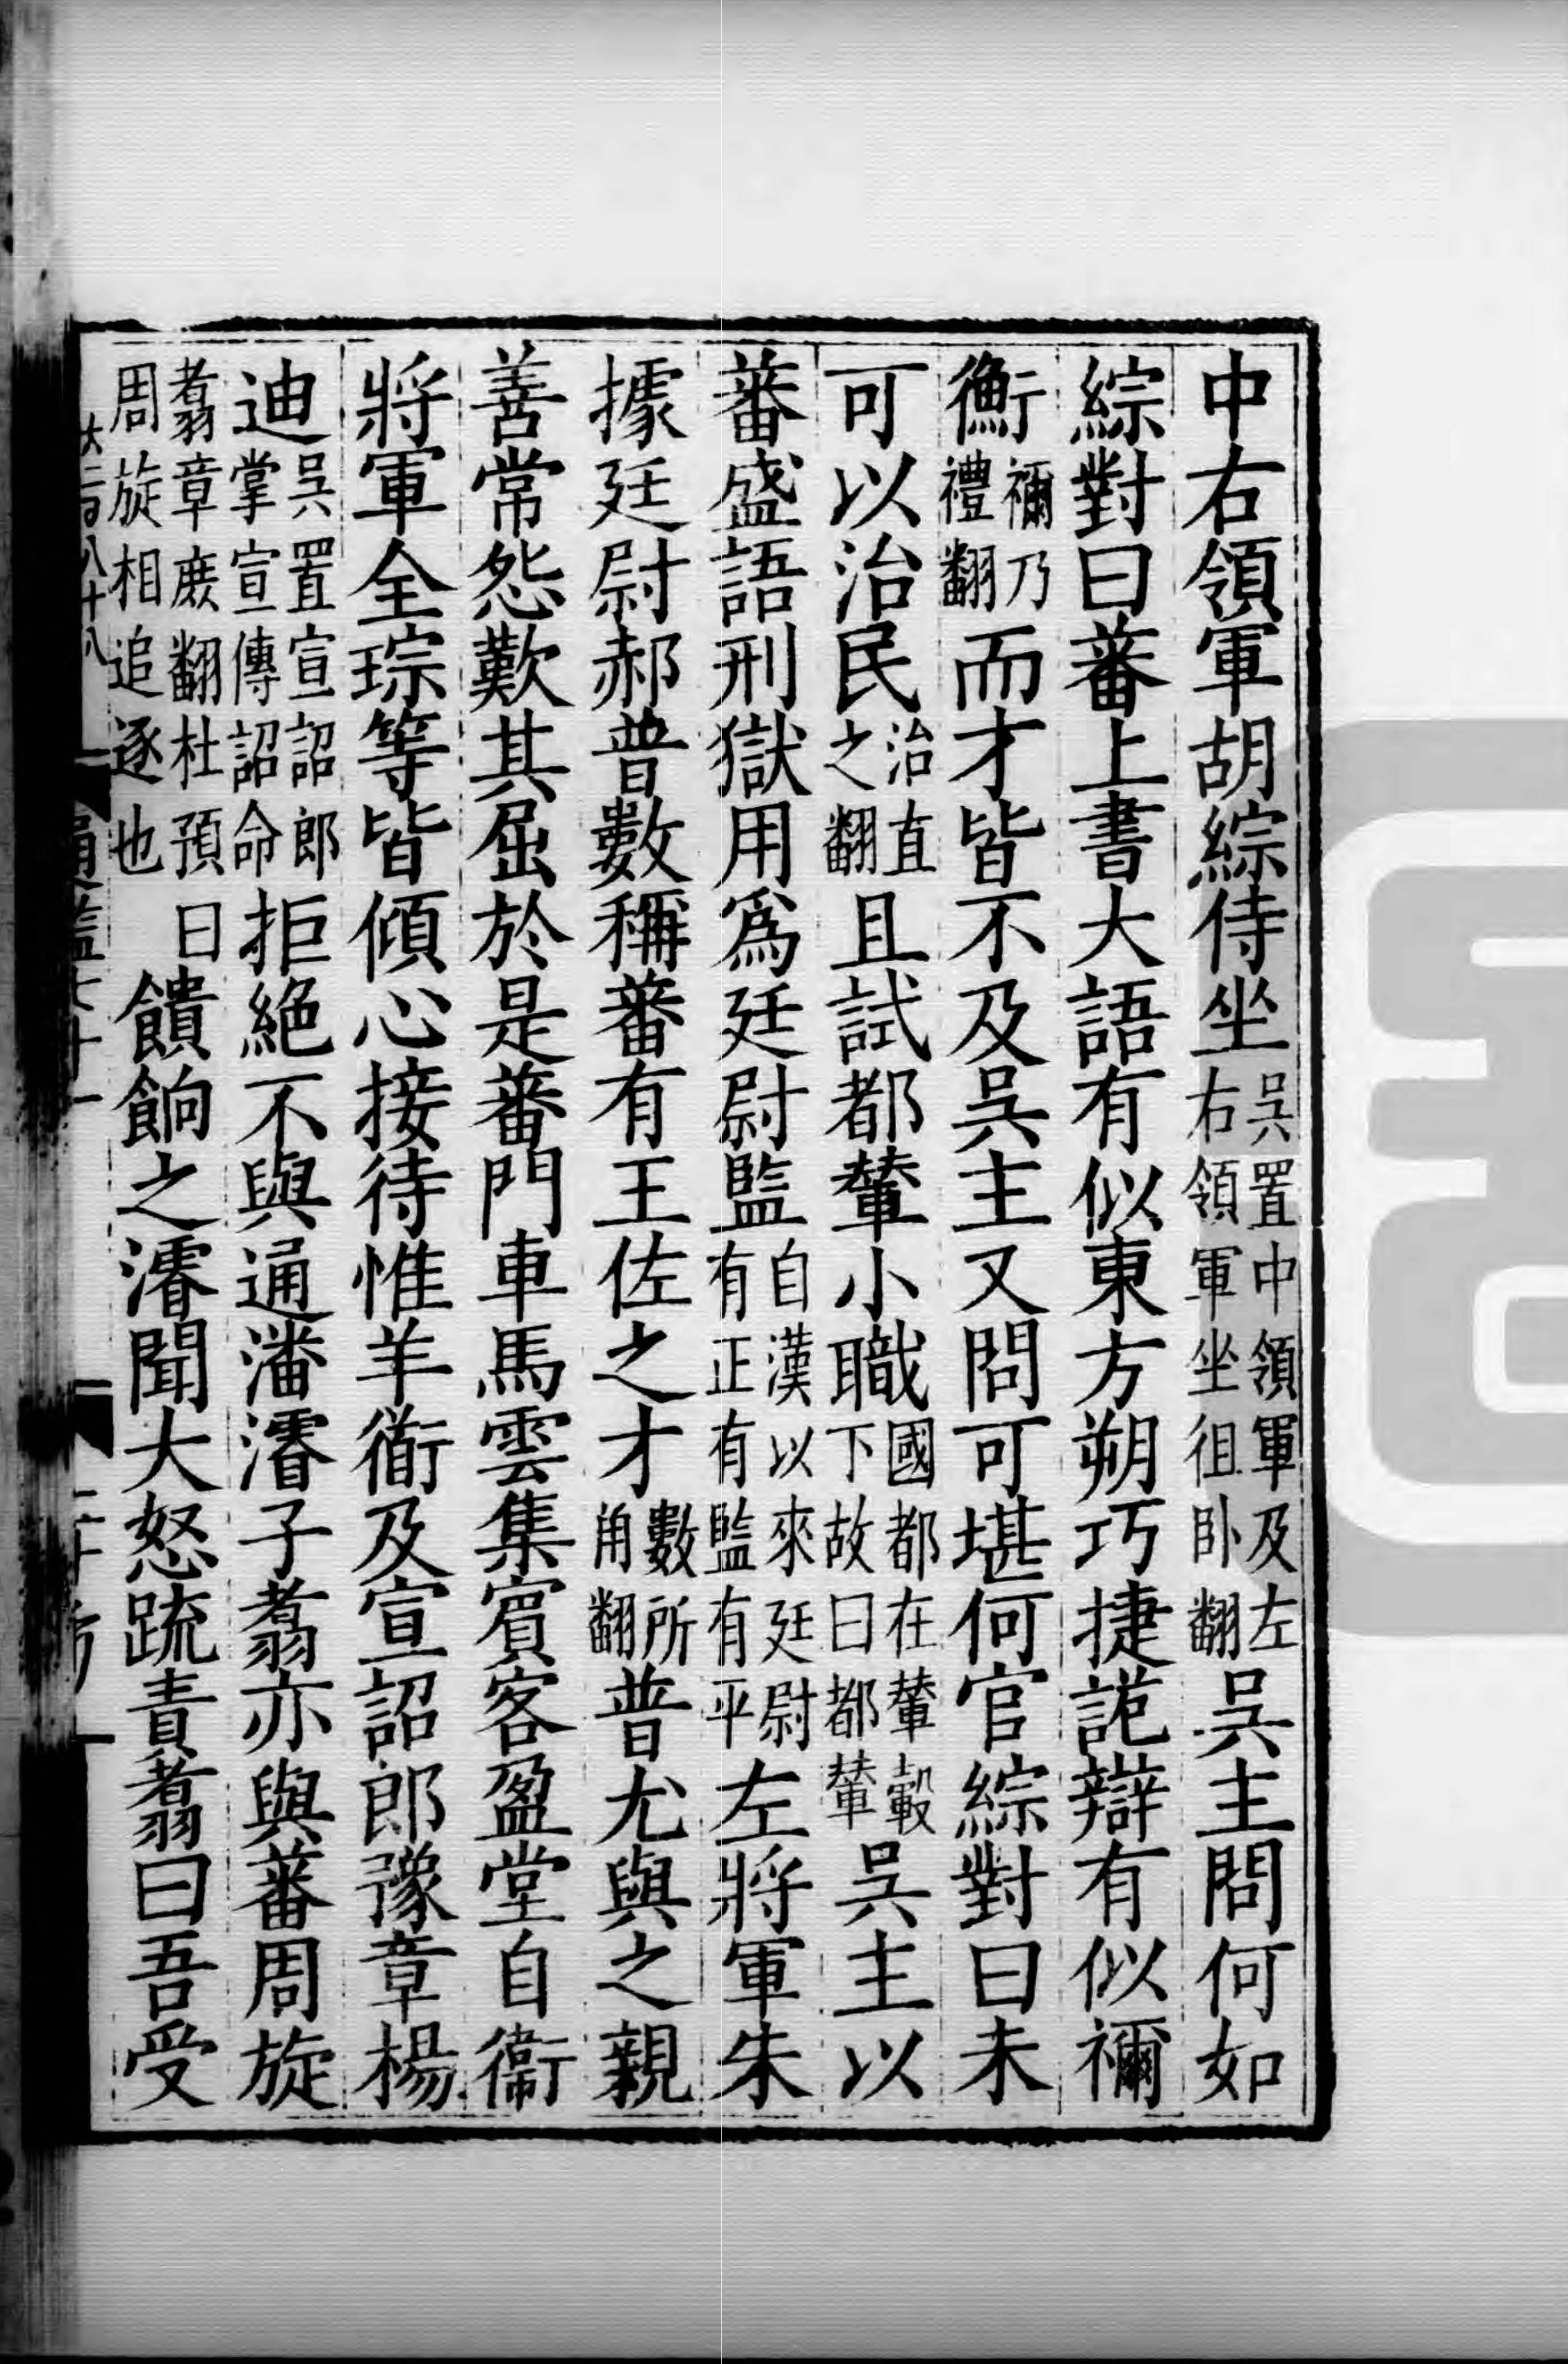 中右領軍胡綜侍坐吳置中領軍及左右領軍坐徂卧翻吳主問何如
綜對曰蕃上書大語有似東方朔巧捷詭辯有似禰
衡禰乃禮翻而才皆不及吳主又問可堪何官綜對曰未
可以治民治直之翻且試都輦小職國都在輦轂下故曰都輦吳主以
蕃盛語刑獄用爲廷尉監自漢以來廷尉有正有監有平左將軍朱
據廷尉郝普數稱蕃有王佐之才數所角翻普尤與之親
善常怨歎其屈於是蕃門車馬雲集賓客盈堂自衞
將軍全琮等皆傾心接待惟羊衜及宣詔郎豫章楊
迪吳置宣詔郎掌宣傳詔命拒絶不與通潘濬子翥亦與蕃周旋
翥章庶翻杜預曰周旋相追逐也饋餉之濬聞大怒䟽責翥曰吾受